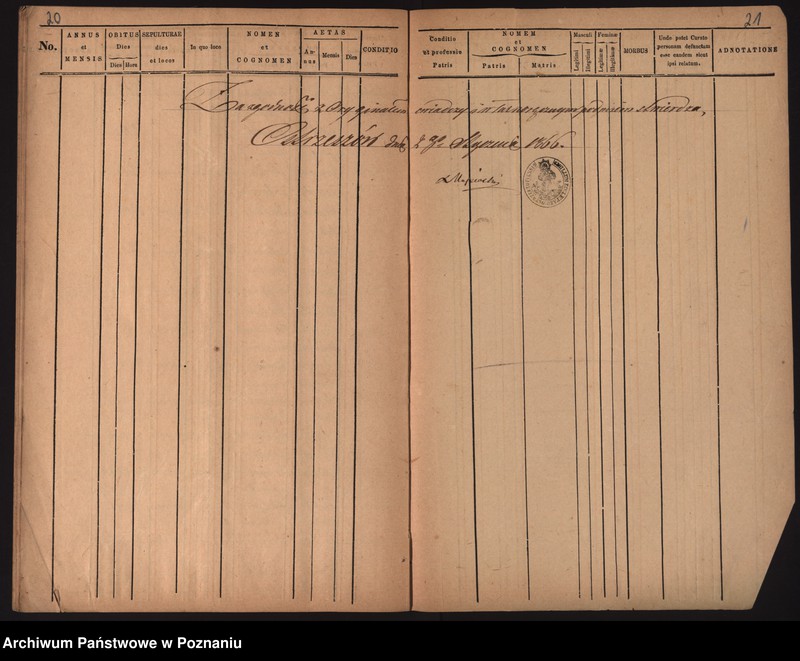 20
21
No.
ANNUS et MENSIS
OBITUS
Dies
Dies Hora
SEPULTURAE dies et locus
In quo loco
NOMEN et COGNOMEN
AETAS
Annus Mensis Dies
CONDITIO
Conditio ut professio Patris
NOMEN et COGNOMEN
Patris Matris
Masculi Feminae
Legitimi Illegitimi Legitimae Illegitimae
MORBUS
Unde patet Curato personam defunctam esse eandem sicut ipsi relatum.
ADNOTATIONE
Za zgodność z Oryginałem świadczy i własnoręcznym podpisem stwierdza,
Ostrzeszów dnia 2go Stycznia 1866.
Archiwum Państwowe w Poznaniu